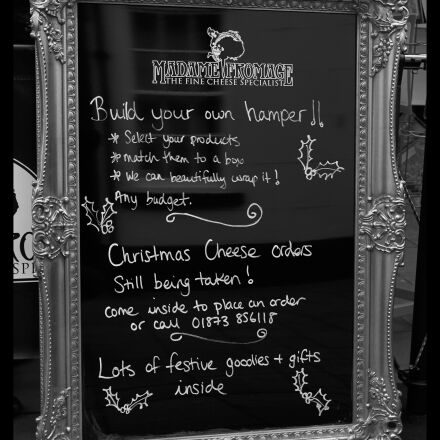 MADAME FROMAGE
THE FINE CHEESE SPECIALIST
Build your own hamper!!
* Select your products
* match them to a box
* We can beautifully wrap it!
Any budget.
Christmas Cheese orders
Still being taken!
come inside to place an order
or call 01873 856118
Lots of festive goodies + gifts
inside